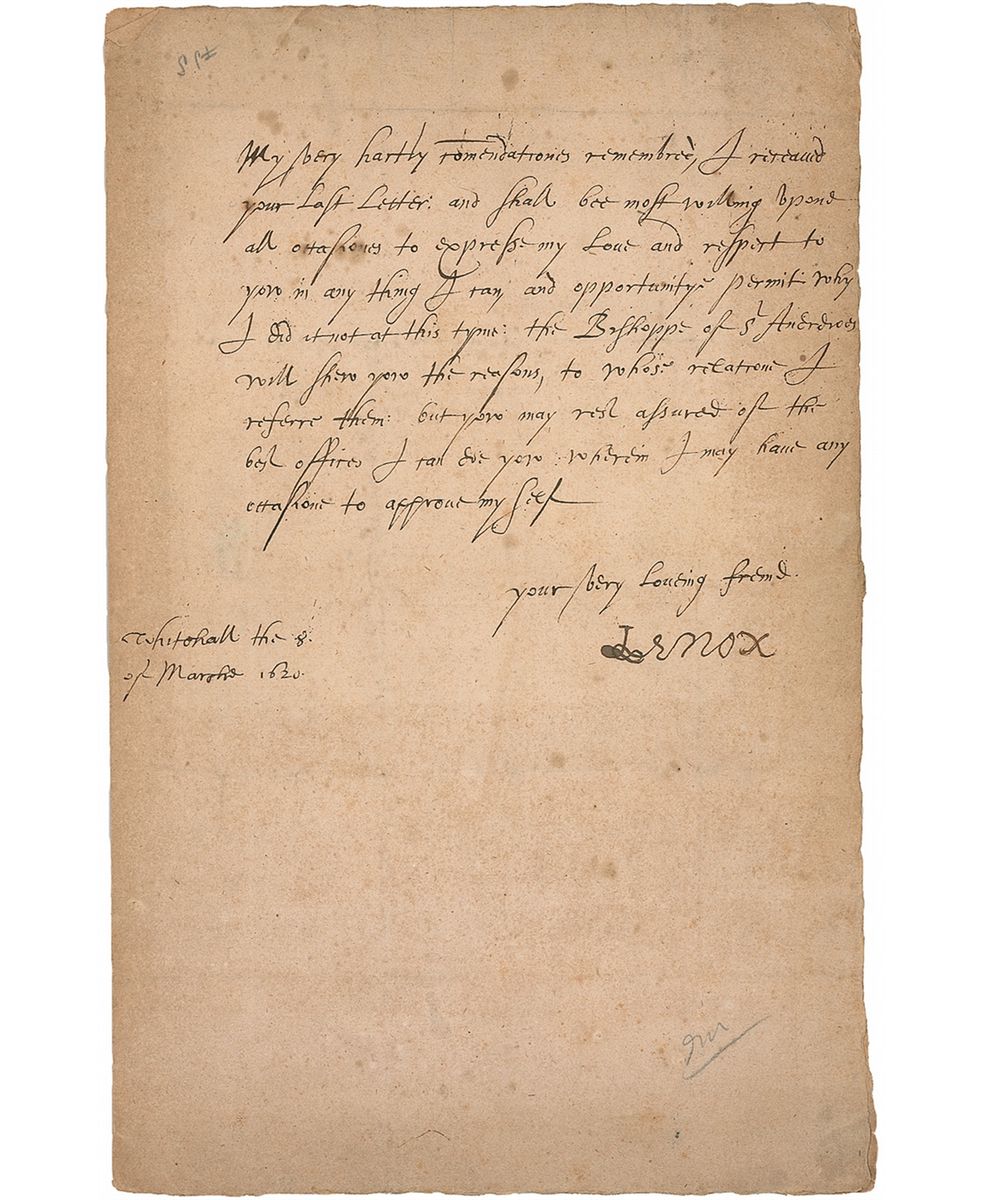 My very hartly comendationes remembred, I receaued
your Last Letter: and shall bee most willing vpone
all occasiones to expresse my Loue and respect to
yow in any thing I can, and opportunitye permit: why
I did it not at this tyme: the Bishoppe of St Andrewes
will shew yow the reasons, to whose relatione I
referre them: but yow may rest assured of the
best offices I can doe yow wherein I may haue any
occasione to approue my self
your very Loueing freind.
Lenox
Whitehall the 8.
of Marche 1620.